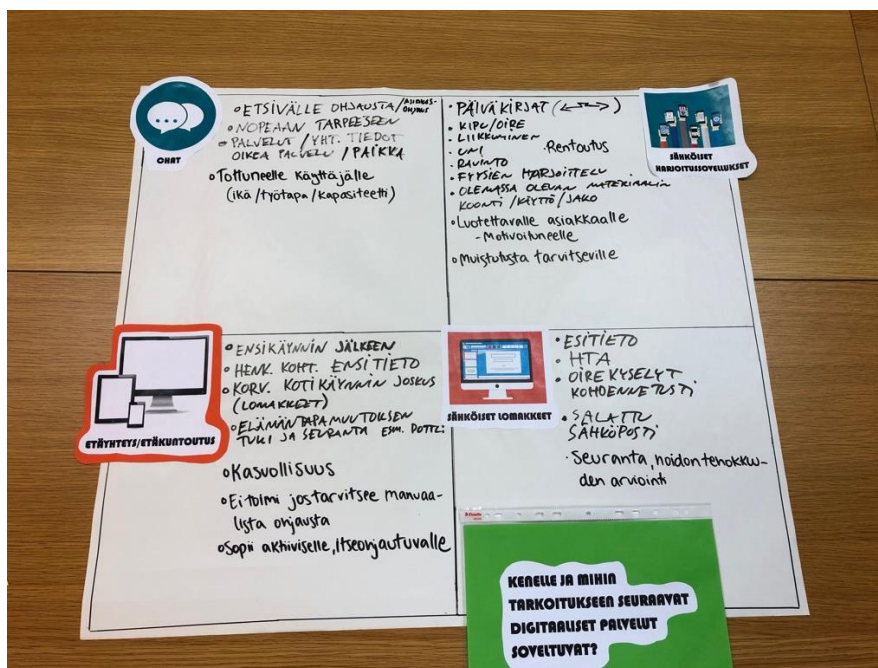 CHAT
• ETSIVÄLLE OHJAUSTA/ASIAKAS-
OHJAUS
• NOPEAAN TARPEESEEN
• PALVELUT / YHT. TIEDOT
OIKEA PALVELU / PAIKKA
• Tottuneelle käyttäjälle
(ikä / työtapa / kapasiteetti)
SÄHKÖISET
HARJOITUSSOVELLUKSET
• PÄIVÄKIRJAT
• KIPU/OIRE
• LIIKKUMINEN
• UNI
• Rentoutus
• RAVINTO
• FYYSIEN HARJOITTELU
• OLEMASSA OLEVAN MATERIAALIN
KOONTI / KÄYTTÖ / JAKO
• Luotettavalle asiakkaalle
- Motivoituneelle
• Muistutusta tarvitseville
ETÄYHTEYS/ETÄKUNTOUTUS
• ENSIKÄYNNIN JÄLKEEN
• HENK. KOHT. ENSITIETO
• KORV. KOTIKÄYNNIN JOSKUS
(LOMAKKEET)
• ELÄMÄNTAPAMUUTOKSEN
TUKI JA SEURANTA ESM.
• Kasvollisuus
• Ei toimi jos tarvitsee manuaa-
lista ohjausta
• Sopii aktiiviselle, itseohjautuvalle
SÄHKÖISET LOMAKKEET
• ESITIETO
• HTA
• OIREKYSELYT
KOHDENNETUSTI
• SALATTU
SÄHKÖPOSTI
• Seuranta, hoidon tehokkuu-
den arviointi
KENELLE JA MIHIN
TARKOITUKSEEN SEURAAVAT
DIGITAALISET PALVELUT
SOVELTUVAT?